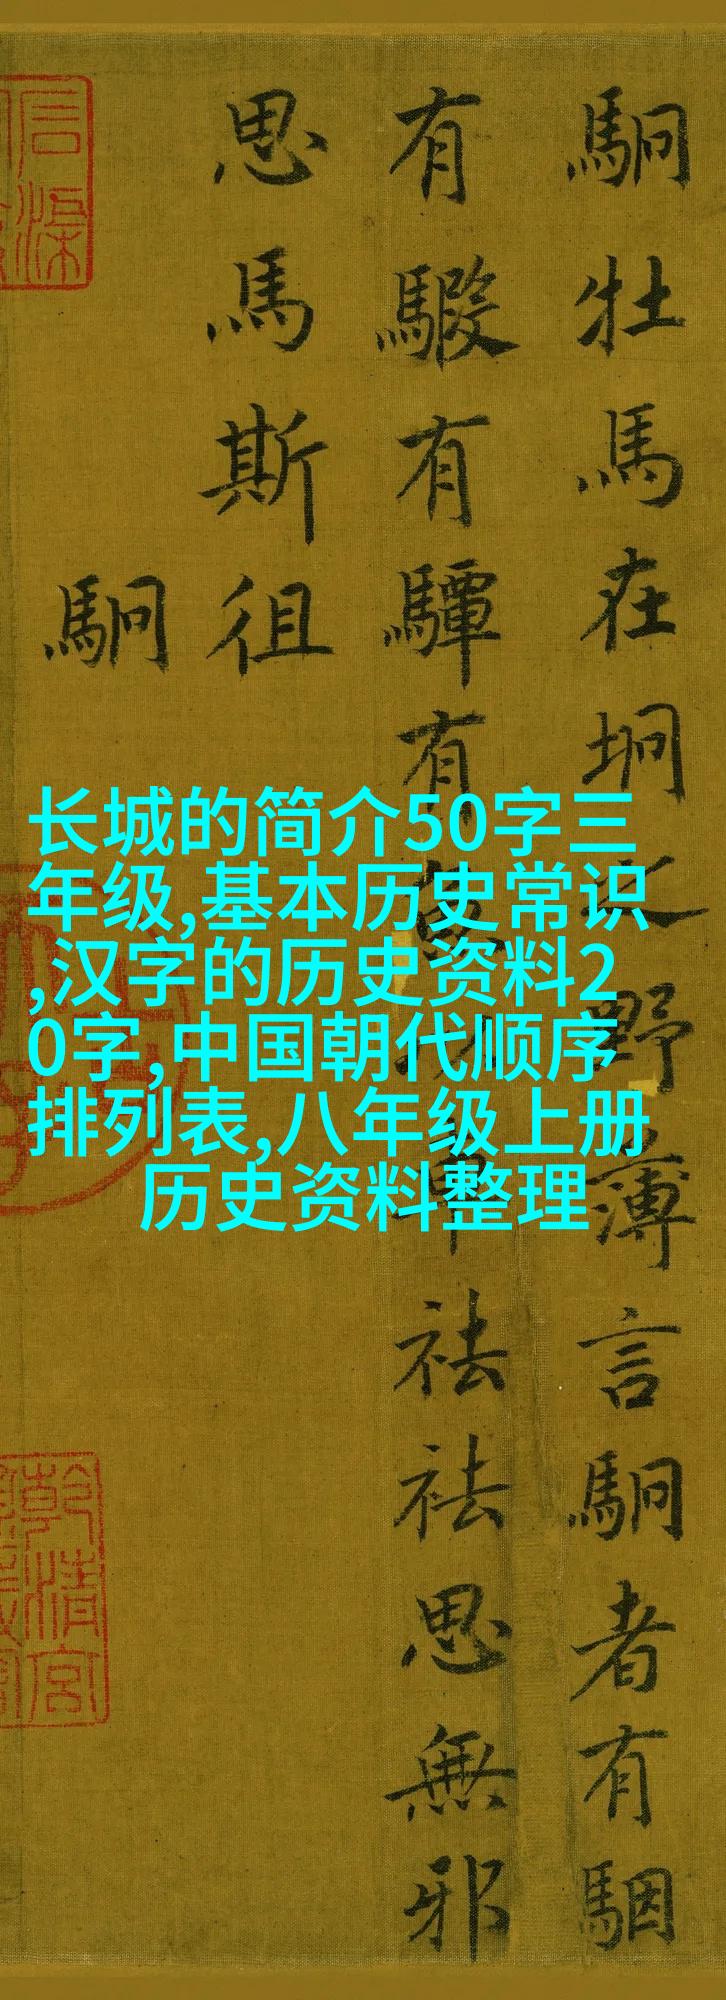 駉牡馬在坰之野薄言駉者有駰
有騢有驔有魚以車祛祛思無邪
思馬斯徂
駉
长城的简介50字三
年级,基本历史常识
,汉字的历史资料2
0字,中国朝代顺序
排列表,八年级上册
历史资料整理
乾清宮